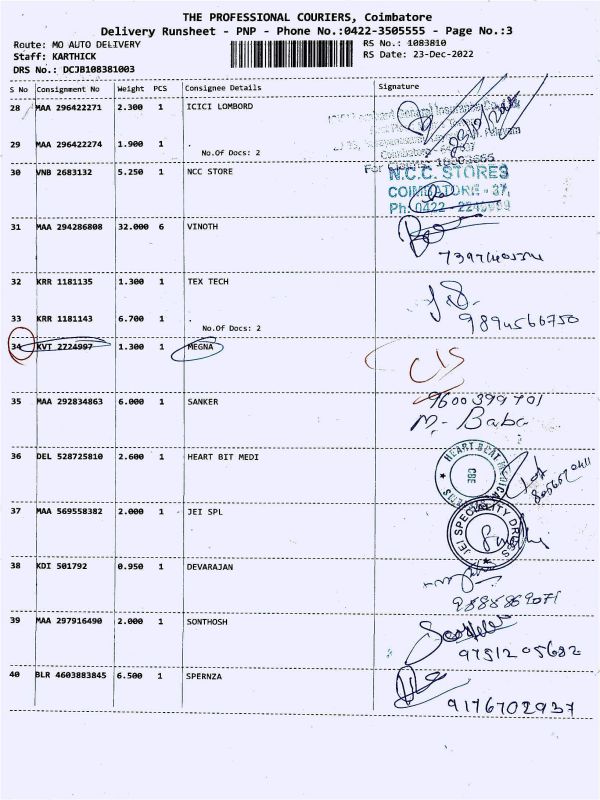 THE PROFESSIONAL COURIERS, Coimbatore
Delivery Runsheet - PNP - Phone No.:0422-3505555 - Page No.:3
Route: MO AUTO DELIVERY RS No.: 1083810
Staff: KARTHICK RS Date: 23-Dec-2022
DRS No.: DCJB108381003
S No Consignment No Weight PCS Consignee Details Signature
28 MAA 296422271 2.300 1 ICICI LOMBORD
29 MAA 296422274 1.900 1 .
No.Of Docs: 2
30 VNB 2683132 5.250 1 NCC STORE
N.C.C. STORES
COIMBATORE - 37,
Ph: 0422 -
31 MAA 294286808 32.000 6 VINOTH
32 KRR 1181135 1.300 1 TEX TECH
33 KRR 1181143 6.700 1 .
No.Of Docs: 2
9894566750
34 KVT 2724997 1.300 1 MEGNA
35 MAA 292834863 6.000 1 SANKER
9600399701
M. Baba
36 DEL 528725810 2.600 1 HEART BIT MEDI
HEART BEAT
CBE
37 MAA 569558382 2.000 1 JEI SPL
JEI SPECIALITY DRUGS
38 KDI 501792 0.950 1 DEVARAJAN
39 MAA 297916490 2.000 1 SONTHOSH
9751205682
40 BLR 4603883845 6.500 1 SPERNZA
9176702937